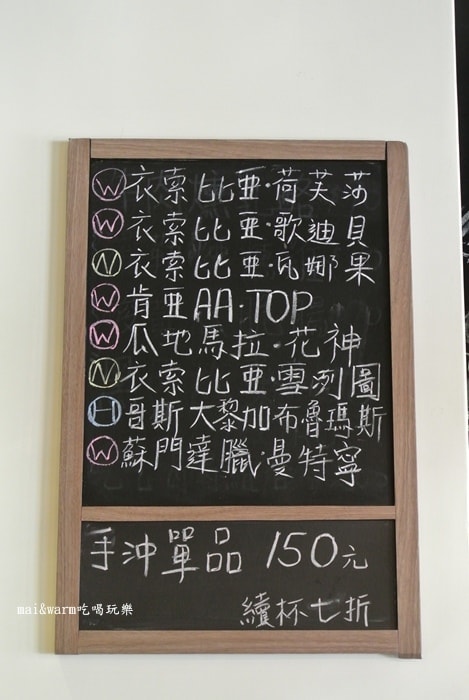 W 衣索比亞·荷芙莎
W 衣索比亞·歌迪貝
N 衣索比亞·瓦娜果
W 肯亞AA·TOP
W 瓜地馬拉·花神
N 衣索比亞·雪冽圖
H 哥斯大黎加布魯瑪斯
W 蘇門達臘·曼特寧
手沖單品 150元
續杯七折
mai&warm吃喝玩樂